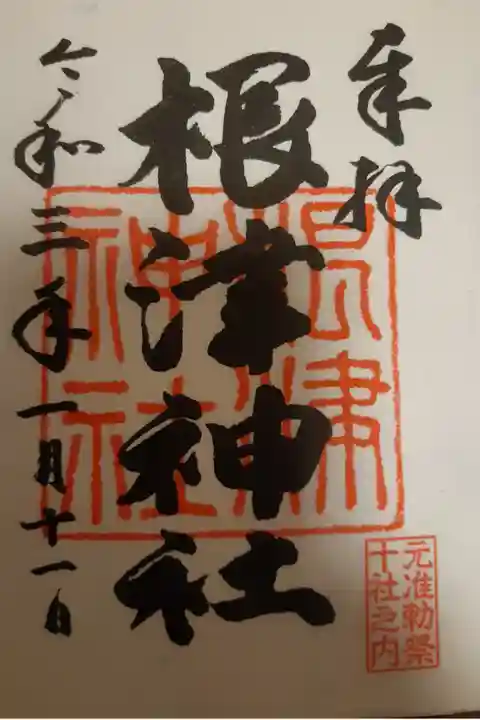 奉拝
根津神社
令和三年一月十一日
根津
神社
元准勅祭
十社之内